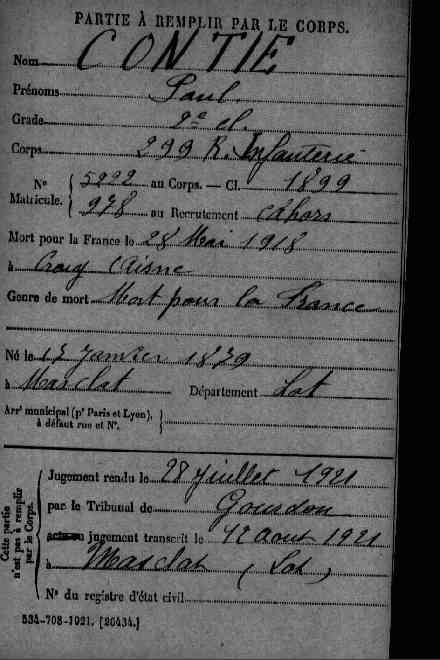 PARTIE À REMPLIR PAR LE CORPS.
Nom CONTIE
Prénoms Paul.
Grade 2e cl.
Corps 299 R. Infanterie
N° Matricule. { 5292 au Corps. — Cl. 1899
978 au Recrutement Cahors
Mort pour la France le 28 Mai 1918
à Crouy (Aisne
Genre de mort Mort pour la France
Né le 15 Janvier 1879
à Masclat Département Lot
Arrt municipal (pr Paris et Lyon), à défaut rue et N°. }
Cette partie n'est pas à remplir par le Corps.
Jugement rendu le 28 Juillet 1921
par le Tribunal de Gourdon
jugement transcrit le 12 Aout 1921
à Masclat (Lot)
N° du registre d'état civil
534-708-1921. [26434.]